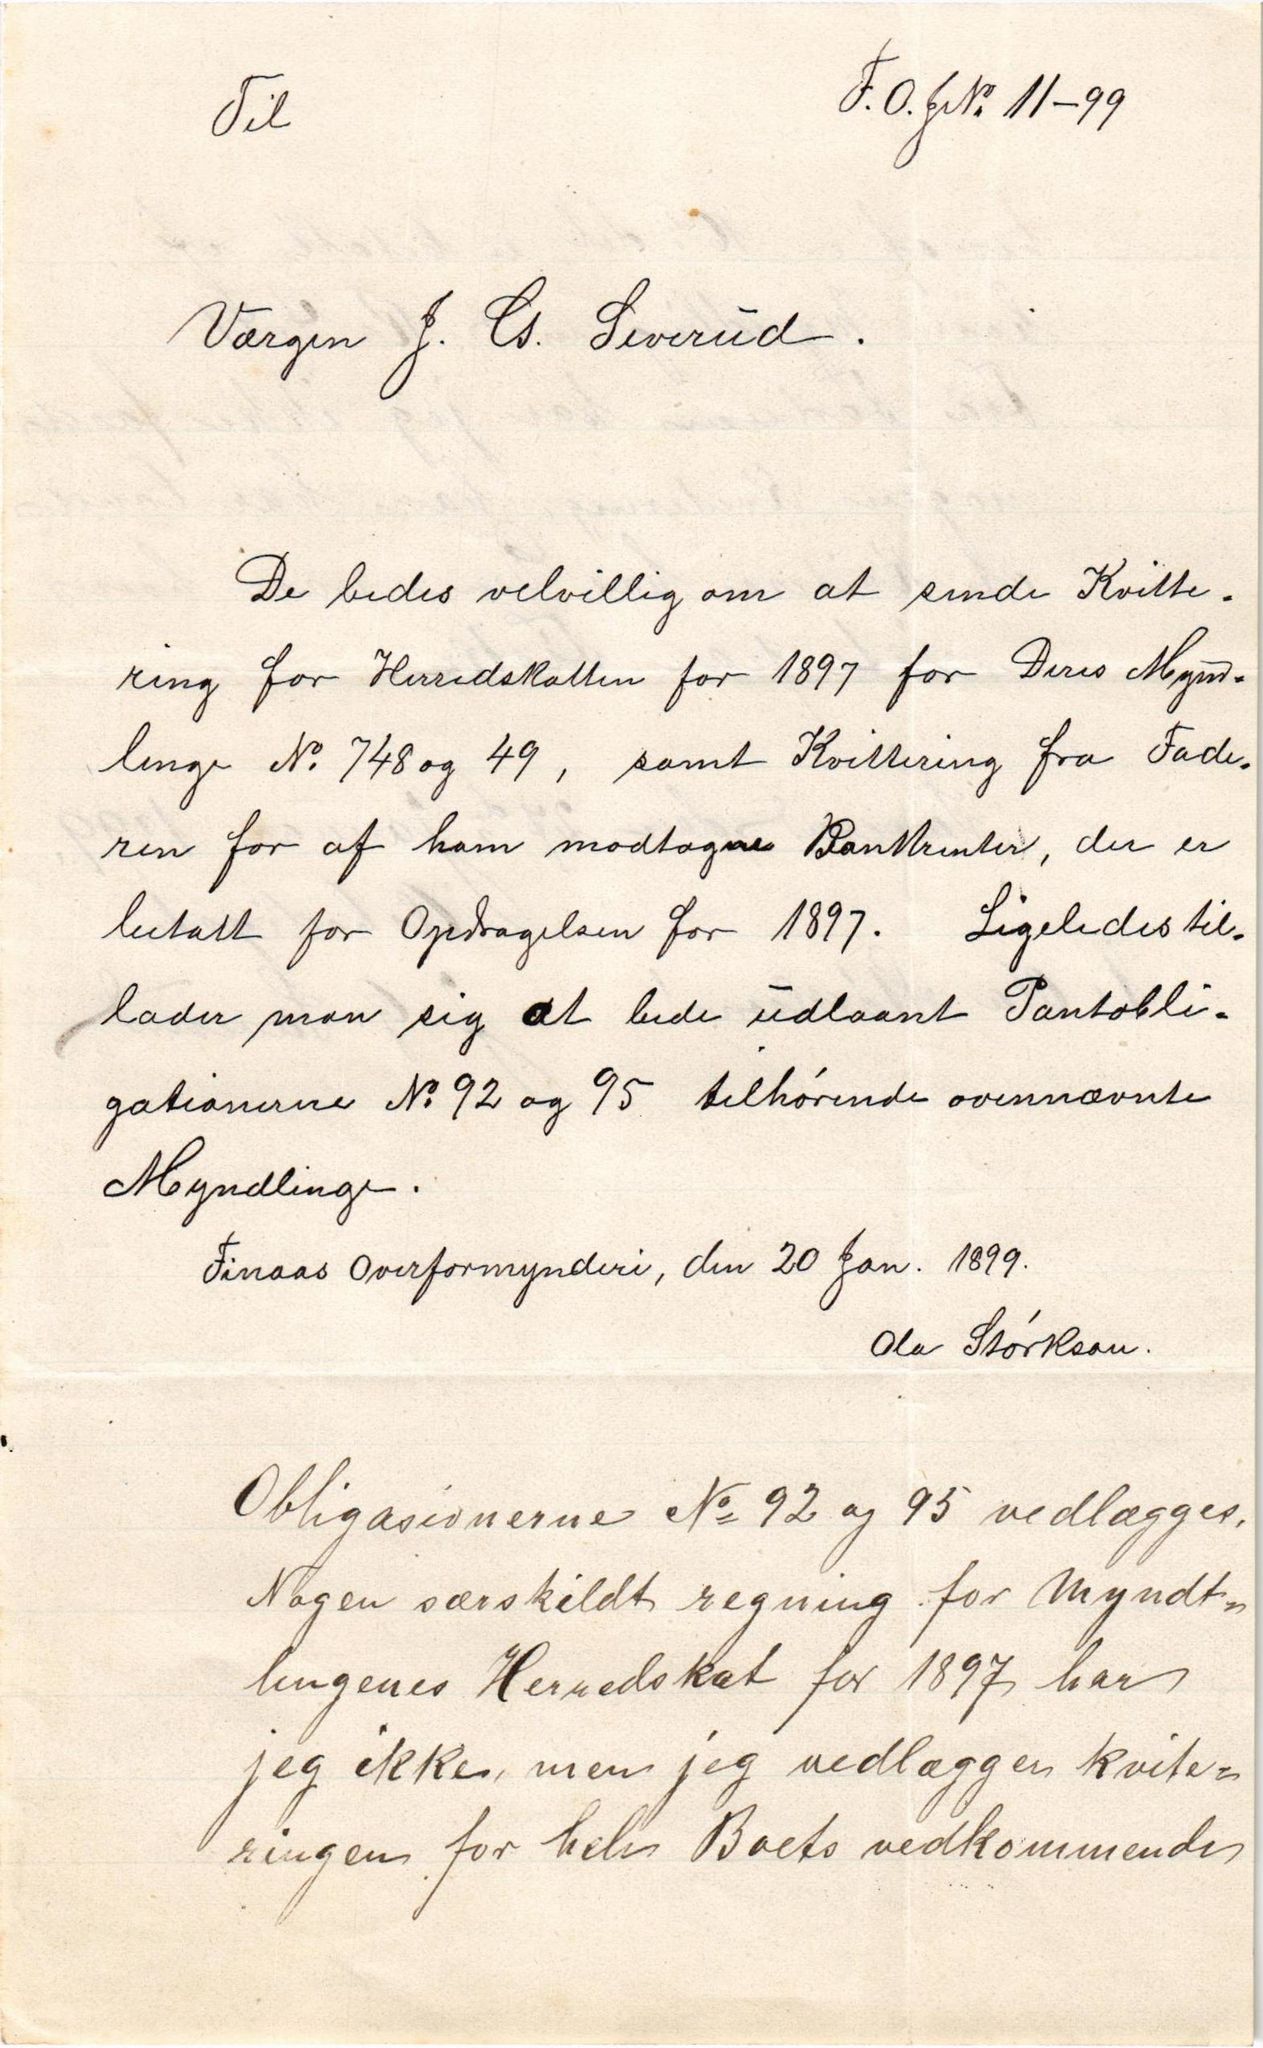 Til
F. O. J. No. 11-99
Værgen J. Cs. Severud.
De bedes velvillig om at sende Kvitte-
ring for Herredskatten for 1897 for Deres Mynd-
linge No. 748 og 49, samt Kvittering fra Fade-
ren for af ham modtagne Bankrenter, der er
betalt for Opdragelsen for 1897. Ligeledes til-
lader man sig at bede udlaant Pantobli-
gationerne No. 92 og 95 tilhørende ovennævnte
Myndlinge.
Finaas Overformynderi, den 20 Jan. 1899.
Ola Størkson.
Obligasionerne No 92 og 95 vedlægges.
Nogen særskildt regning for Myndt=
lingenes Herredskat for 1897 har
jeg ikke, men jeg vedlægger kvite=
ringen for hele Boets vedkommende